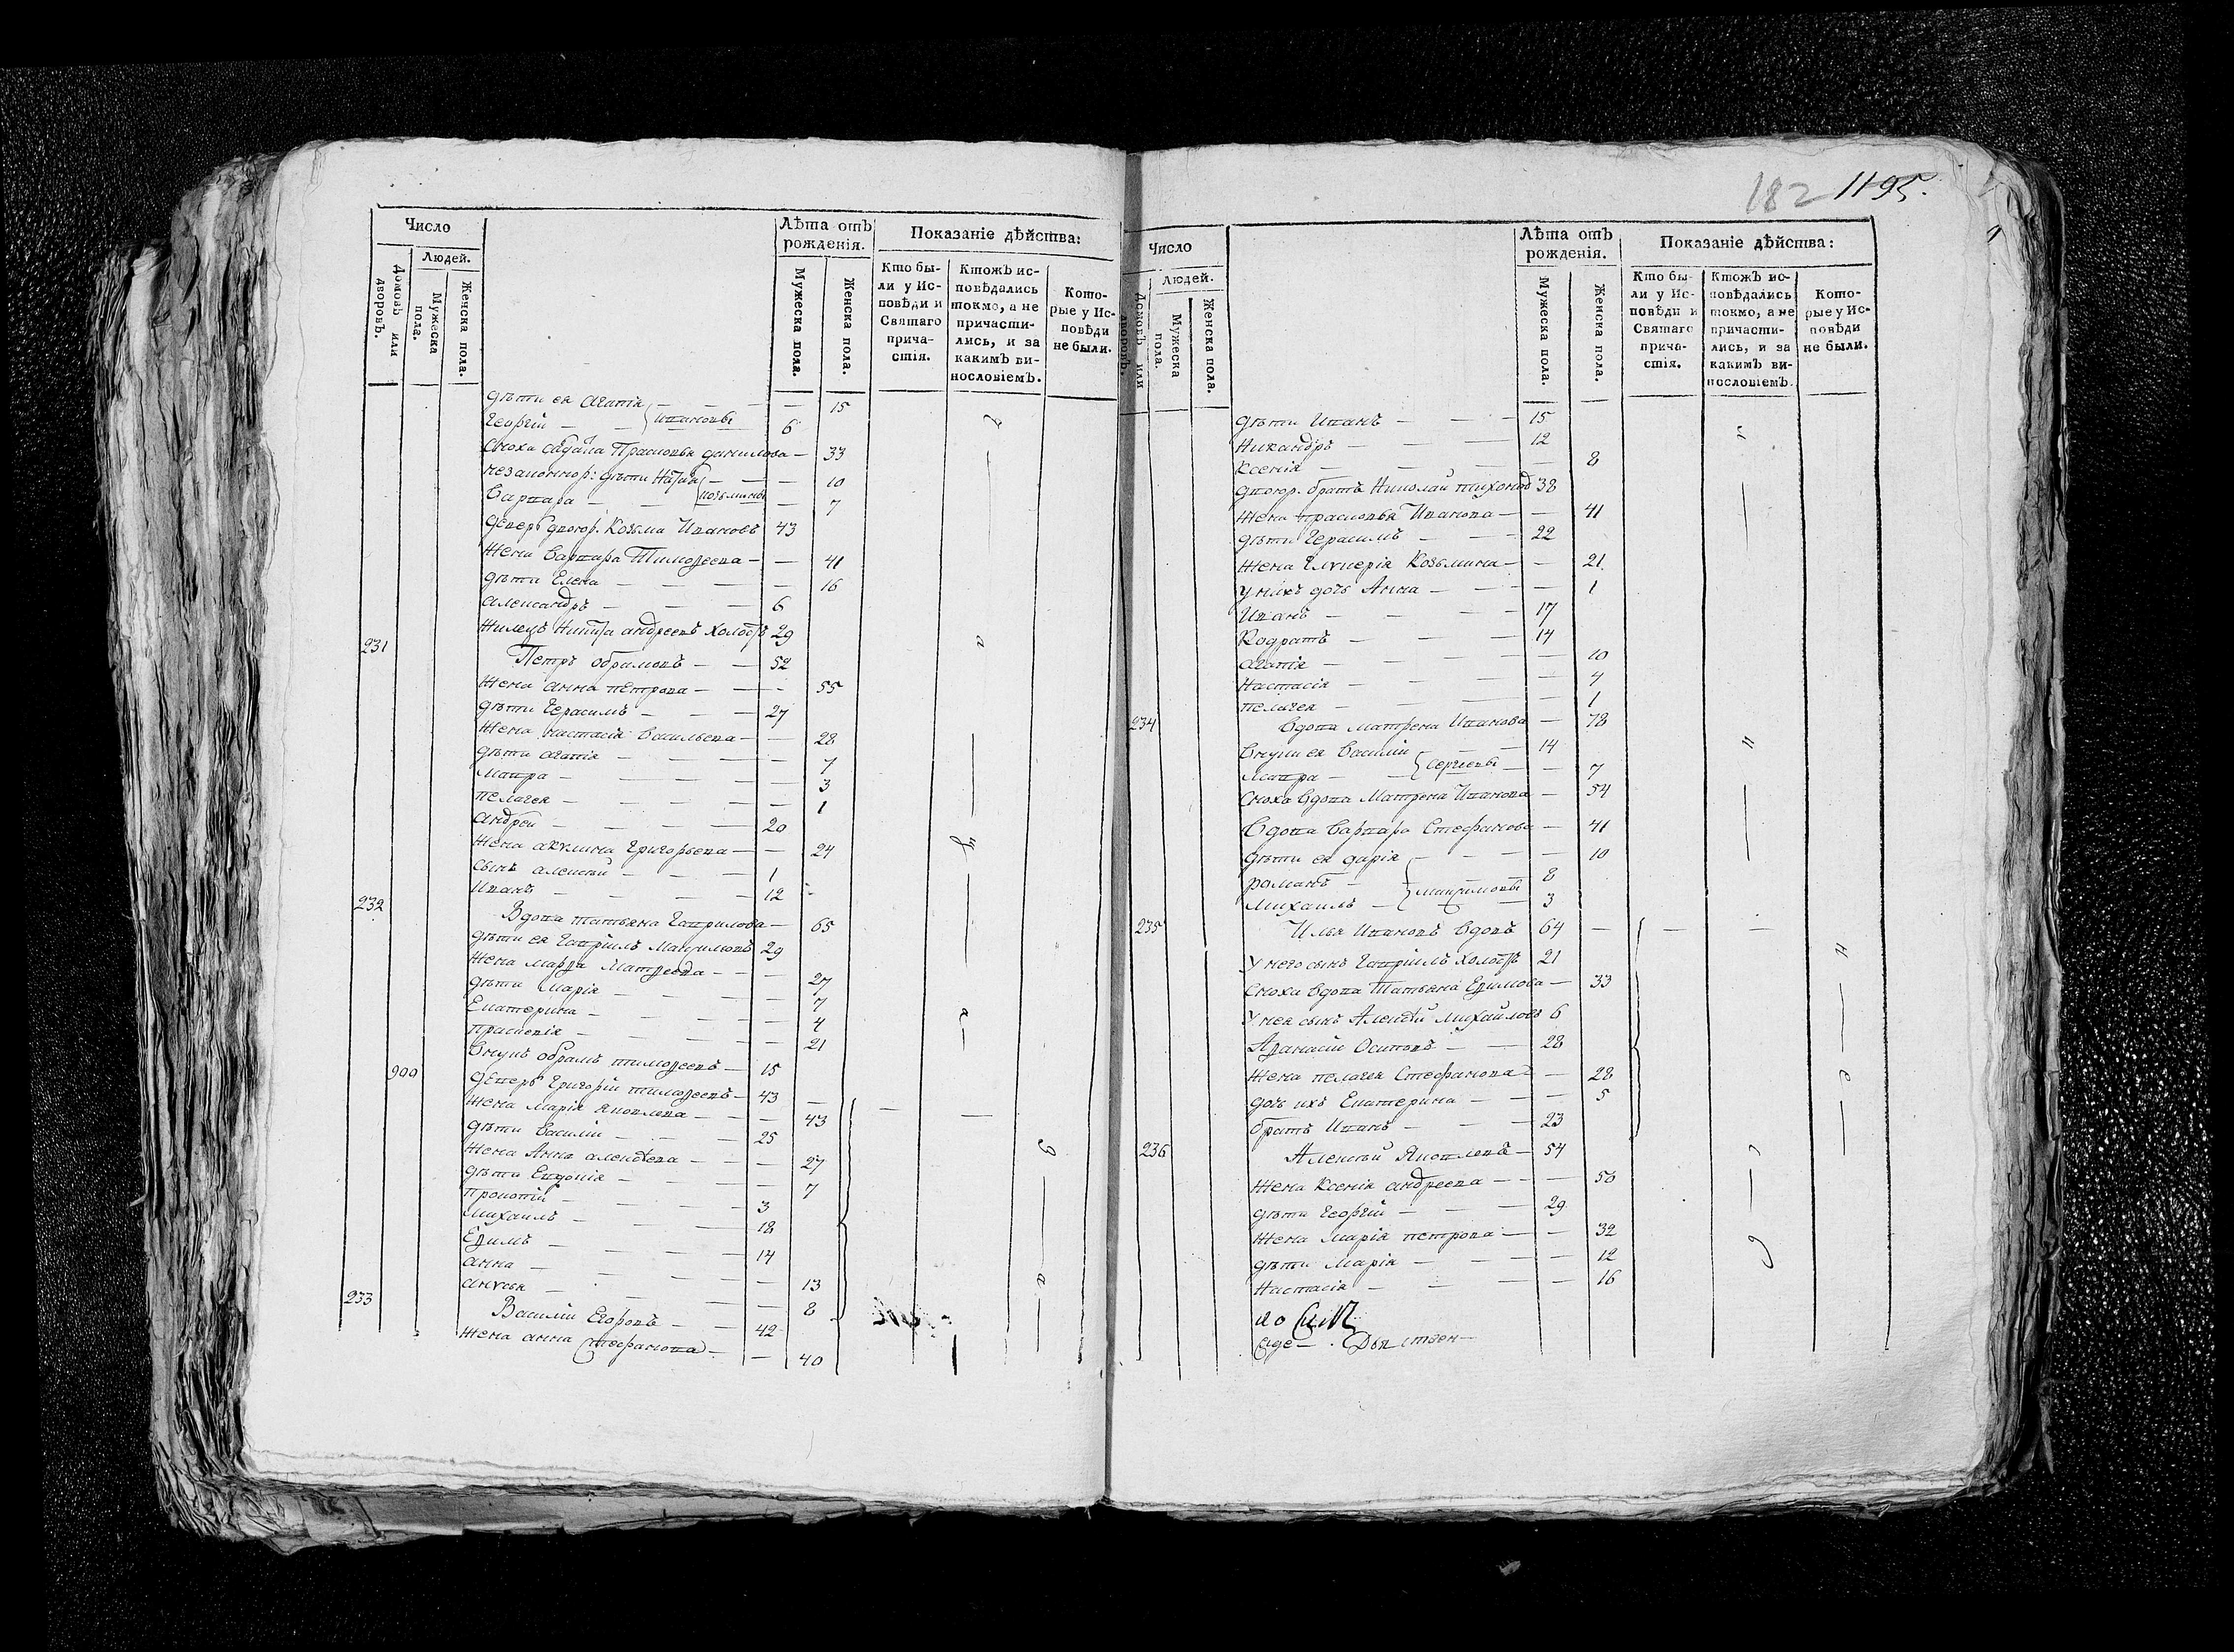 182 1195.
Число
Лѣта отъ рожденія.
Показаніе дѣйства:
Домовъ или дворовъ.
Людей.
Мужеска пола.
Женска пола.
Мужеска пола.
Женска пола.
Кто бы-
ли у Ис-
повѣди и
Святаго
прича-
стія.
Ктожъ ис-
повѣдались
токмо, а не
причасти-
лись, и за
какимъ ви-
нословіемъ.
Кото-
рые у Ис-
повѣди
не были.
дѣти ея Агапія — 15
Георгій — Ивановы 6
Сноха Прасковья данилова — 33
дѣти — 10
Варвара — Козьмины — 7
деверь двоюр. Козма Ивановъ 43
Жена Варвара Тимофеева — 41
дѣти Елена — 16
Александръ — 6
Жилецъ Никита андреевъ холостъ 29
231 Петръ обрамовъ — 52
Жена анна петрова — 55
дѣти Герасимъ — 27
Жена настасія Васильева — 28
дѣти агапія — 7
Мавра — 3
пелагея — 1
Андрей — 20
Жена акулина Григорьева — 24
сынъ алексѣй — 1
Иванъ — 12
232 Вдова татьяна Гаврилова — 65
дѣти ея Гавріилъ Максимовъ 29
Жена марфа Матфеева — 27
дѣти Марія — 7
Екатерина — 4
прасковія — 21
Внукъ обрамъ тимофеевъ — 15
900 деверь Григорій тимофеевъ — 43
Жена Марія Яковлева — 43
дѣти Василій — 25
Жена Анна алексѣева — 27
дѣти Евдокія — 7
Прокопій — 3
Михаилъ — 18
Ефимъ — 14
анна — 13
8
233 Василій Егоровъ — 42
Жена анна Стефанова — 40
Число
Лѣта отъ рожденія.
Показаніе дѣйства:
Домовъ или дворовъ.
Людей.
Мужеска пола.
Женска пола.
Мужеска пола.
Женска пола.
Кто бы-
ли у Ис-
повѣди и
Святаго
прича-
стія.
Ктожъ ис-
повѣдались
токмо, а не
причасти-
лись, и за
какимъ ви-
нословіемъ.
Кото-
рые у Ис-
повѣди
не были.
дѣти Иванъ — 15
Никандръ — 12
Ксенія — 8
двоюр. братъ Николай тихоновъ 38
Жена прасковья Иванова — 41
дѣти Герасимъ — 22
Жена Глукерія Козьмина — 21
у нихъ дочь Анна — 1
Иванъ — 17
Кодратъ — 14
агапія — 10
Настасія — 4
пелагея — 1
234 Вдова матрена Иванова — 78
Внуки ея Василій — 14
Мавра — Сергіевы — 7
сноха Вдова Матрена Иванова — 54
Вдова Варвара Стефанова — 41
дѣти ея дарія — 10
романъ — 8
Михаилъ — Максимовы 3
235 Илья Ивановъ Вдовъ 64
У него сынъ Гавріилъ холостъ 21
Сноха Вдова Татьяна Ефимова — 33
У нея сынъ Алексѣй михайловъ 6
Афанасій Осиповъ — 28
Жена пелагея Стефанова — 28
дочь ихъ Екатерина — 5
братъ Иванъ — 23
236 Алексѣй Яковлевъ — 54
Жена Ксенія андреева — 50
дѣти Георгій — 29
Жена Марія петрова — 32
дѣти Марія — 12
Настасія — 16